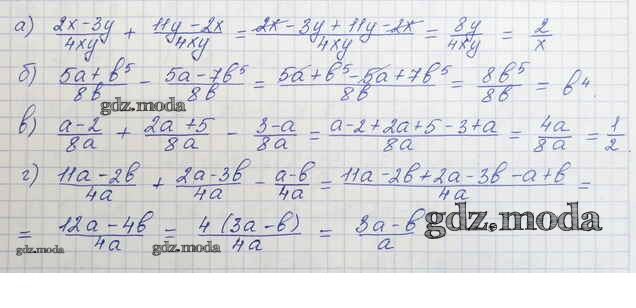 а) (2x-3y)/(4xy) + (11y-2x)/(4xy) = (2x-3y+11y-2x)/(4xy) = (8y)/(4xy) = 2/x
б) (5a+b⁵)/(8b) - (5a-7b⁵)/(8b) = (5a+b⁵-5a+7b⁵)/(8b) = (8b⁵)/(8b) = b⁴.
gdz.moda
в) (a-2)/(8a) + (2a+5)/(8a) - (3-a)/(8a) = (a-2+2a+5-3+a)/(8a) = (4a)/(8a) = 1/2.
г) (11a-2b)/(4a) + (2a-3b)/(4a) - (a-b)/(4a) = (11a-2b+2a-3b-a+b)/(4a) =
= (12a-4b)/(4a) = (4(3a-b))/(4a) = (3a-b)/a
gdz.moda
gdz.moda
gdz.moda